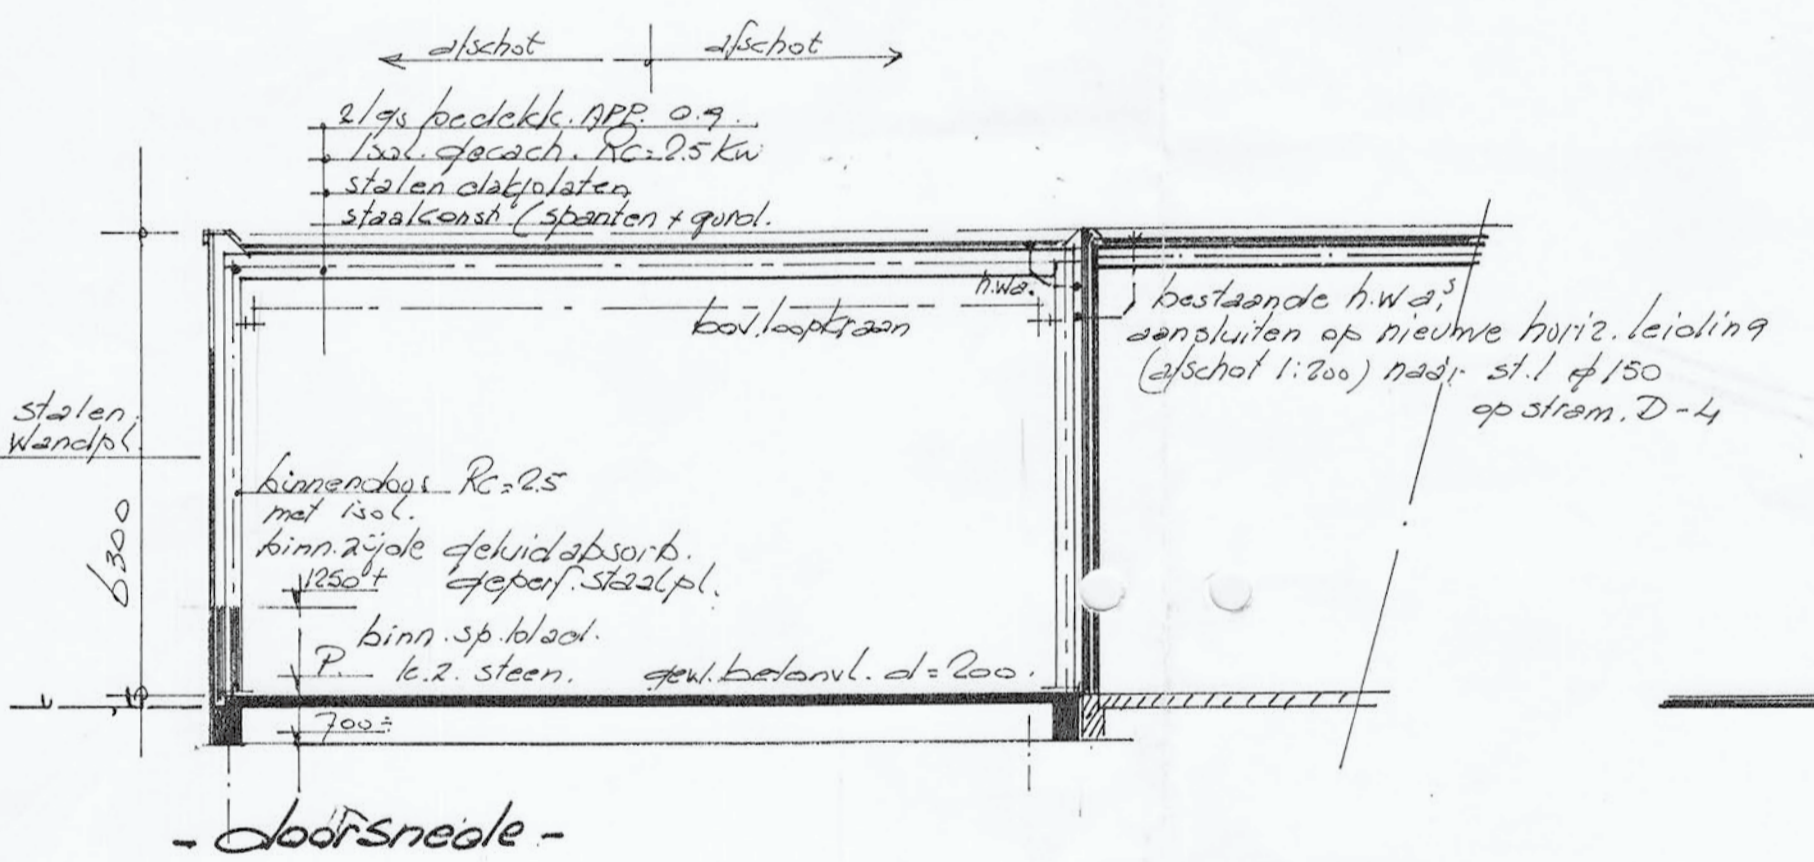 afschot afschot
2lgs bedekk. APP. o.g.
Isol. gecach. Rc=2.5 Kw
stalen dakplaten
staalconstr (spanten + gord.
h.wa.
bov.loopkraan
bestaande h.wa's
aansluiten op nieuwe horiz. leiding
(afschot 1:200) naar st.l ø 150
op stram. D-4
stalen
wandpl.
6300
binnendoos Rc=2.5
met isol.
binn.zijde geluidabsorb.
1250+ geperf.staalpl.
binn.sp.blad.
P. k.z. steen. gewl.betonvl. d=200.
700÷
- doorsnede -